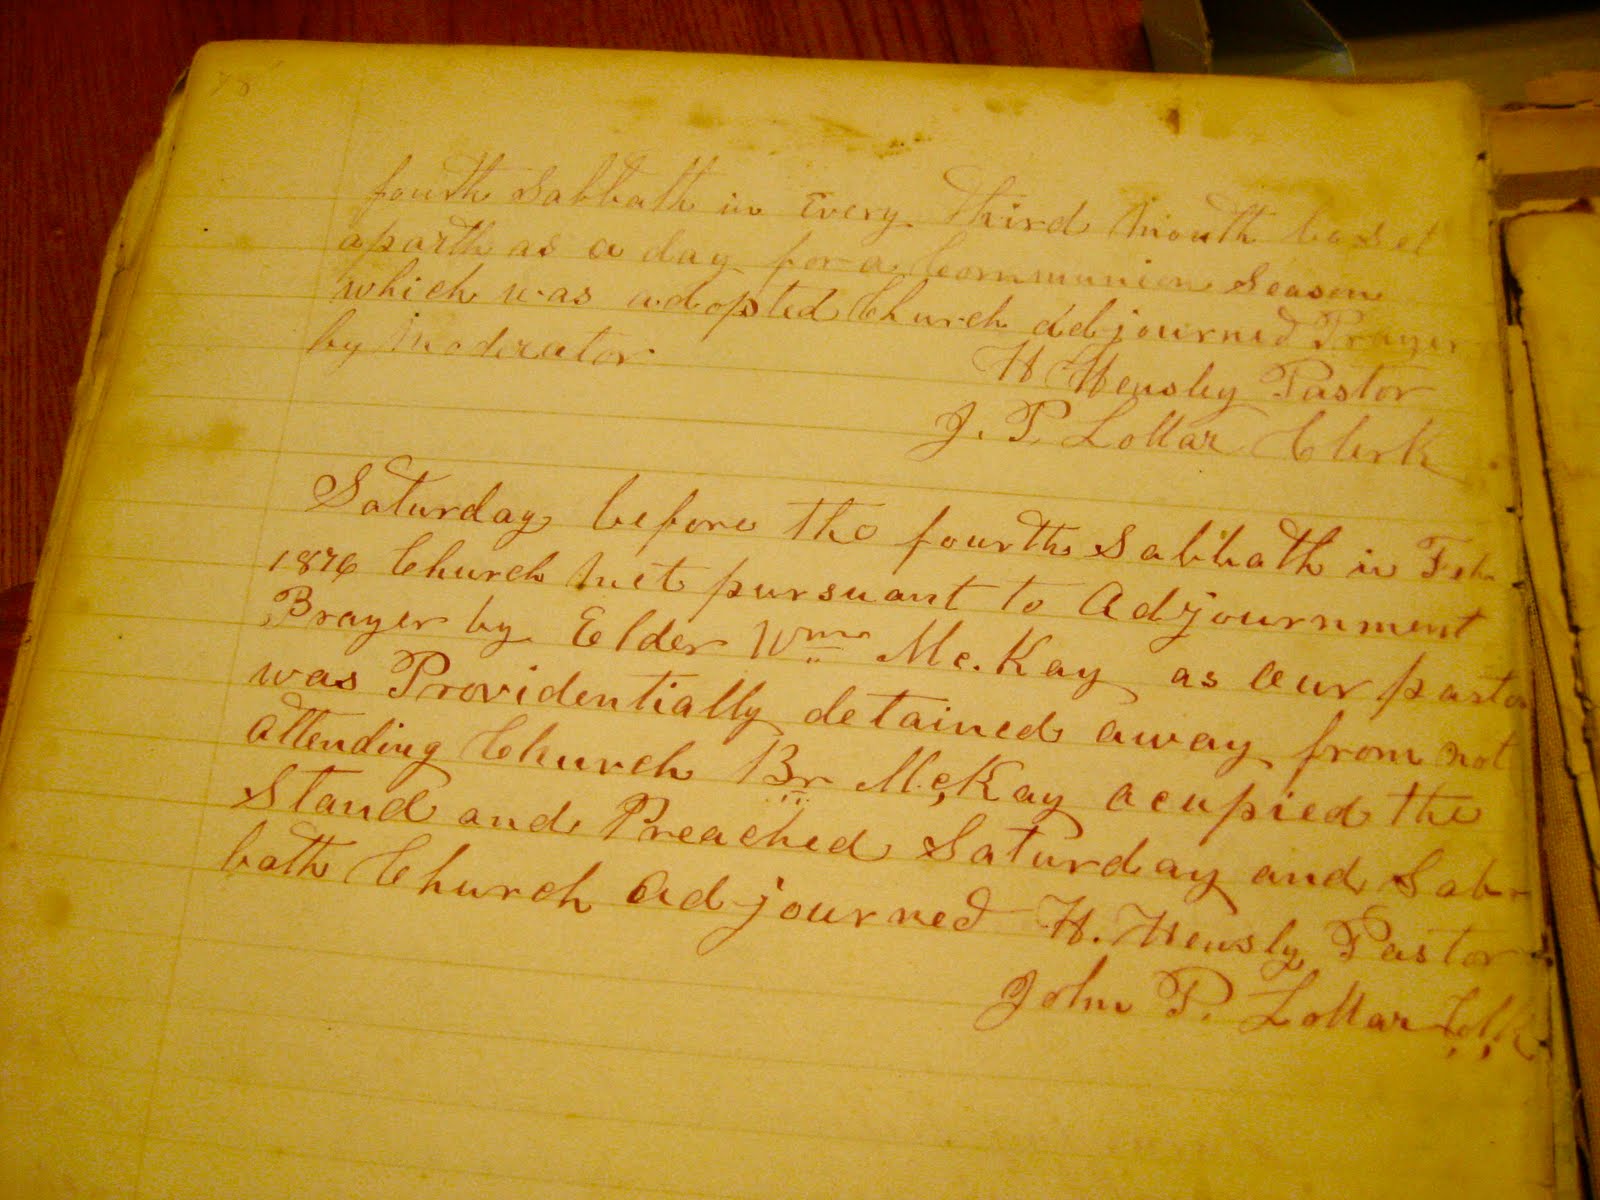 78
fourth Sabbath in Every third Month be set
aparth as a day for a Communion Season
which was adopted Church adjourned Prayer
by Moderator.
H Hensley Pastor
J. P. Lollar Clerk
Saturday before the fourth Sabbath in Feb
1876 Church Met pursuant to Adjournment
Prayer by Elder Wm Mc.Kay as our pastor
was Providentially detained away from not
attending Church Br McKay acupied the
Stand and Preached Saturday and Sab-
bath Church Adjourned H. Hensly Pastor
John P. Lollar C,,k